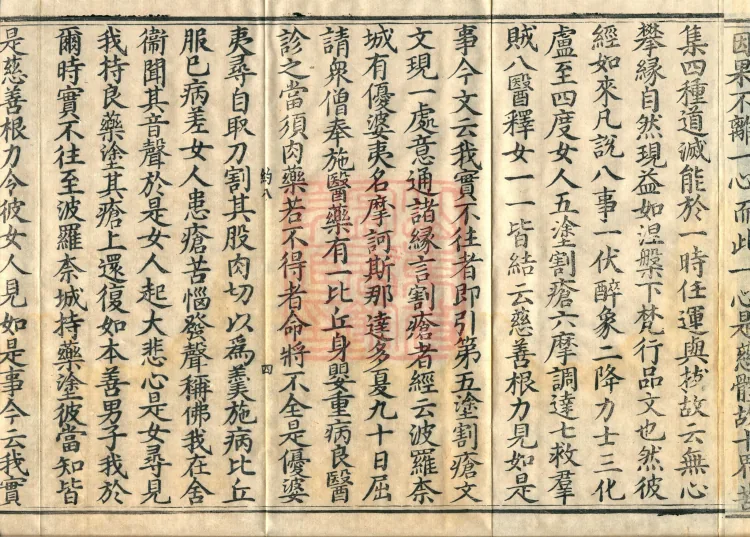 因果不離一心而此一心是慈體故十界
集四種道滅能於一時任運與拔故云無心
攀緣自然現益如涅槃下梵行品文也然彼
經如來凡說八事一伏醉象二降力士三化
盧至四度女人五塗割瘡六摩調達七救羣
賊八醫釋女一一皆結云慈善根力見如是
事今文云我實不往者即引第五塗割瘡文
文現一處意通諸緣言割瘡者經云波羅柰
城有優婆夷名摩訶斯那達多夏九十日屈
請衆僧奉施醫藥有一比丘身嬰重病良醫
診之當須肉藥若不得者命將不全是優婆
約八
四
夷尋自取刀割其股肉切以爲羹施病比丘
服已病差女人患瘡苦惱發聲稱佛我在舍
衞聞其音聲於是女人起大悲心是女尋見
我持良藥塗其瘡上還復如本善男子我於
爾時實不往至波羅柰城持藥塗彼當知皆
是慈善根力令彼女人見如是事今云我實